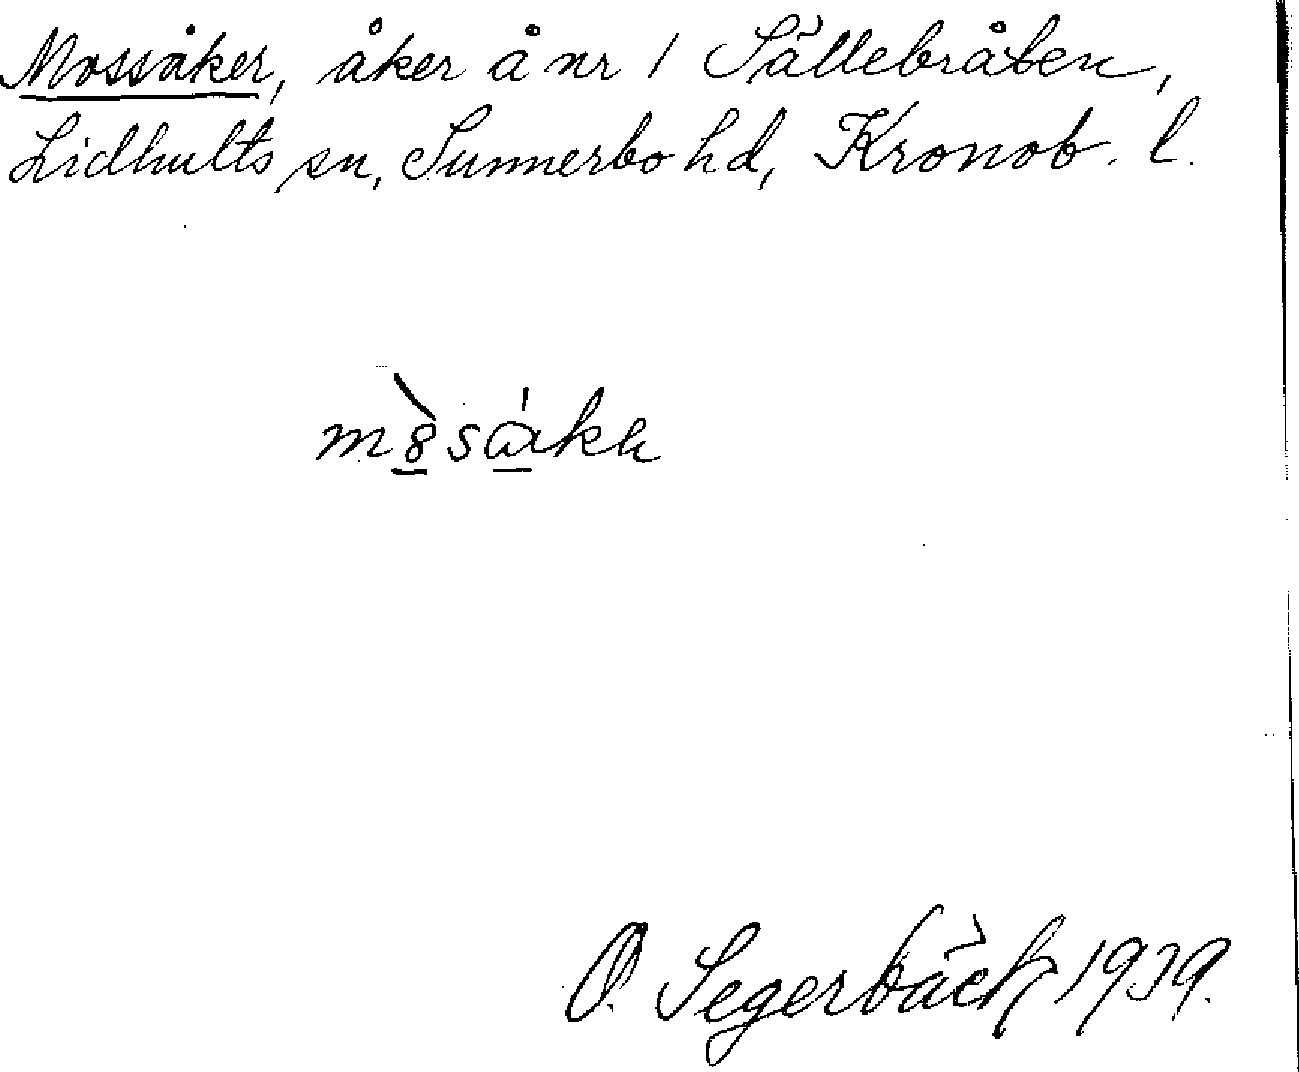 Mossåker, åker å nr 1 Sällebråten,
Lidhults sn, Sunnerbo hd, Kronob. l.
O. Segerbäck 1939.